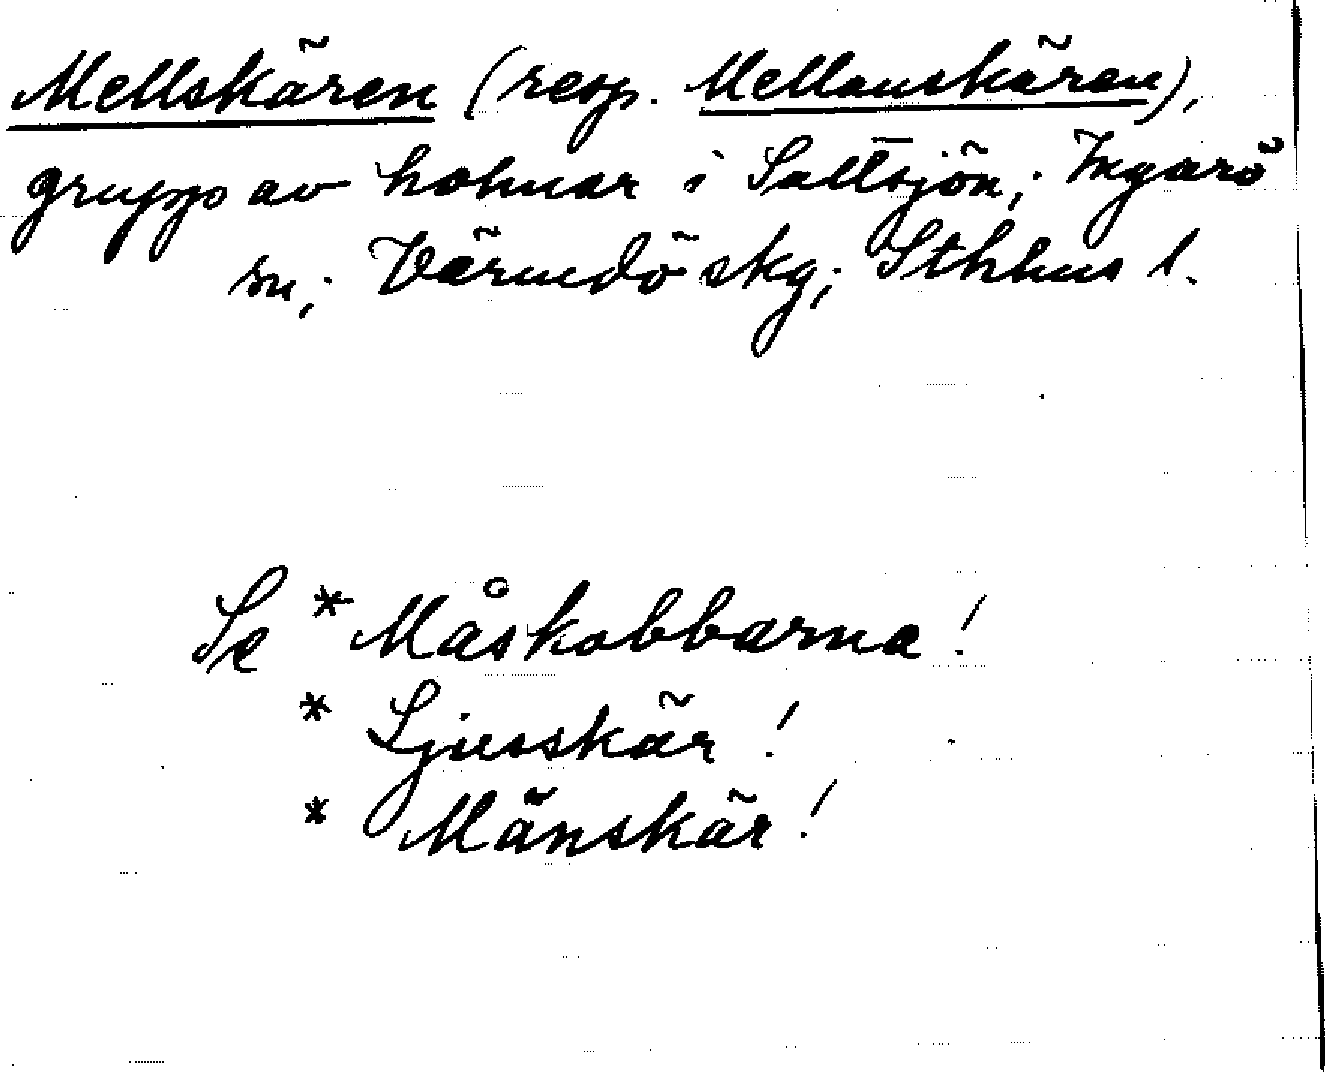 Mellskären (resp. Mellanskären),
grupp av holmar i Saltsjön; Ingarö
sn; Värmdö skg; Sthlms l.
Se * Måskobbarna!
* Ljusskär!
* Mänskär!